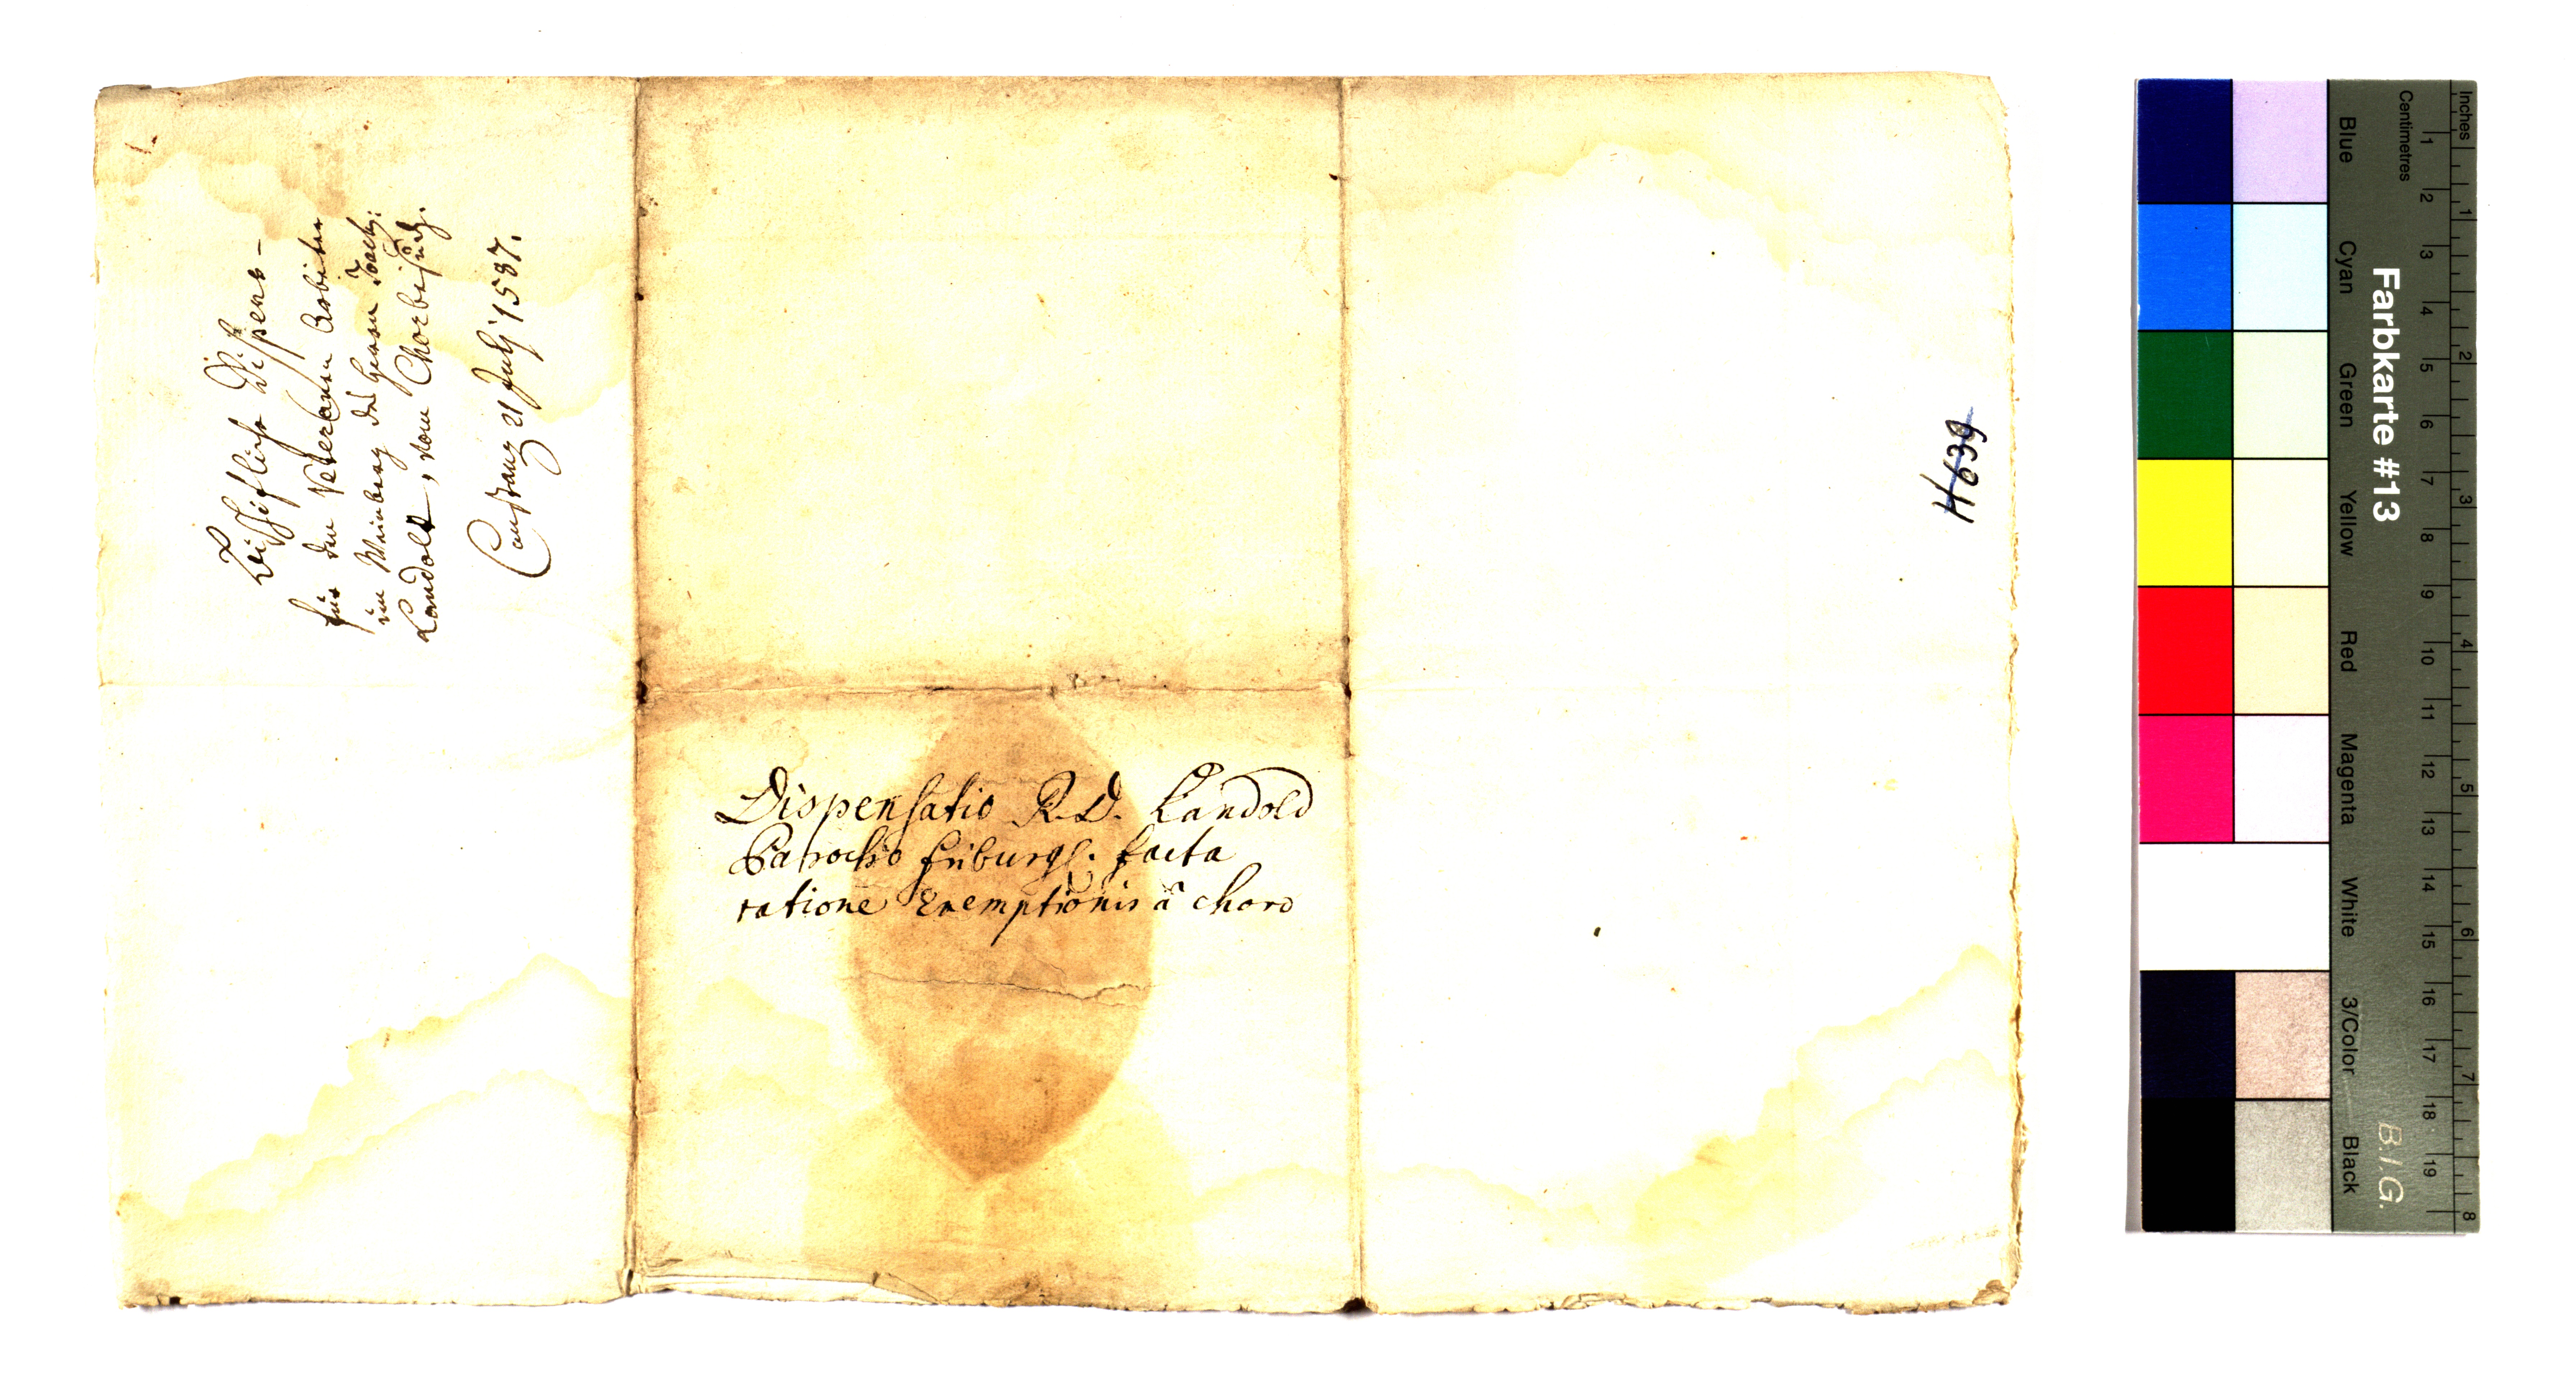 Bischöfliche Dispens-
für den Überlasnen Arbeiten
im Weinberg des Herren Joach:
Landolt, vom Chorbesuch.
Constanz 21 July 1587.
Dispensatio R. D. Landold
Parocho friburgs. facta
ratione Exemptionis â choro
H 639
Farbkarte #13
B.I.G.
Inches
Centimetres
Blue
Cyan
Green
Yellow
Red
Magenta
White
3/Color
Black
1 2 3 4 5 6 7 8 9 10 11 12 13 14 15 16 17 18 19
1 2 3 4 5 6 7 8